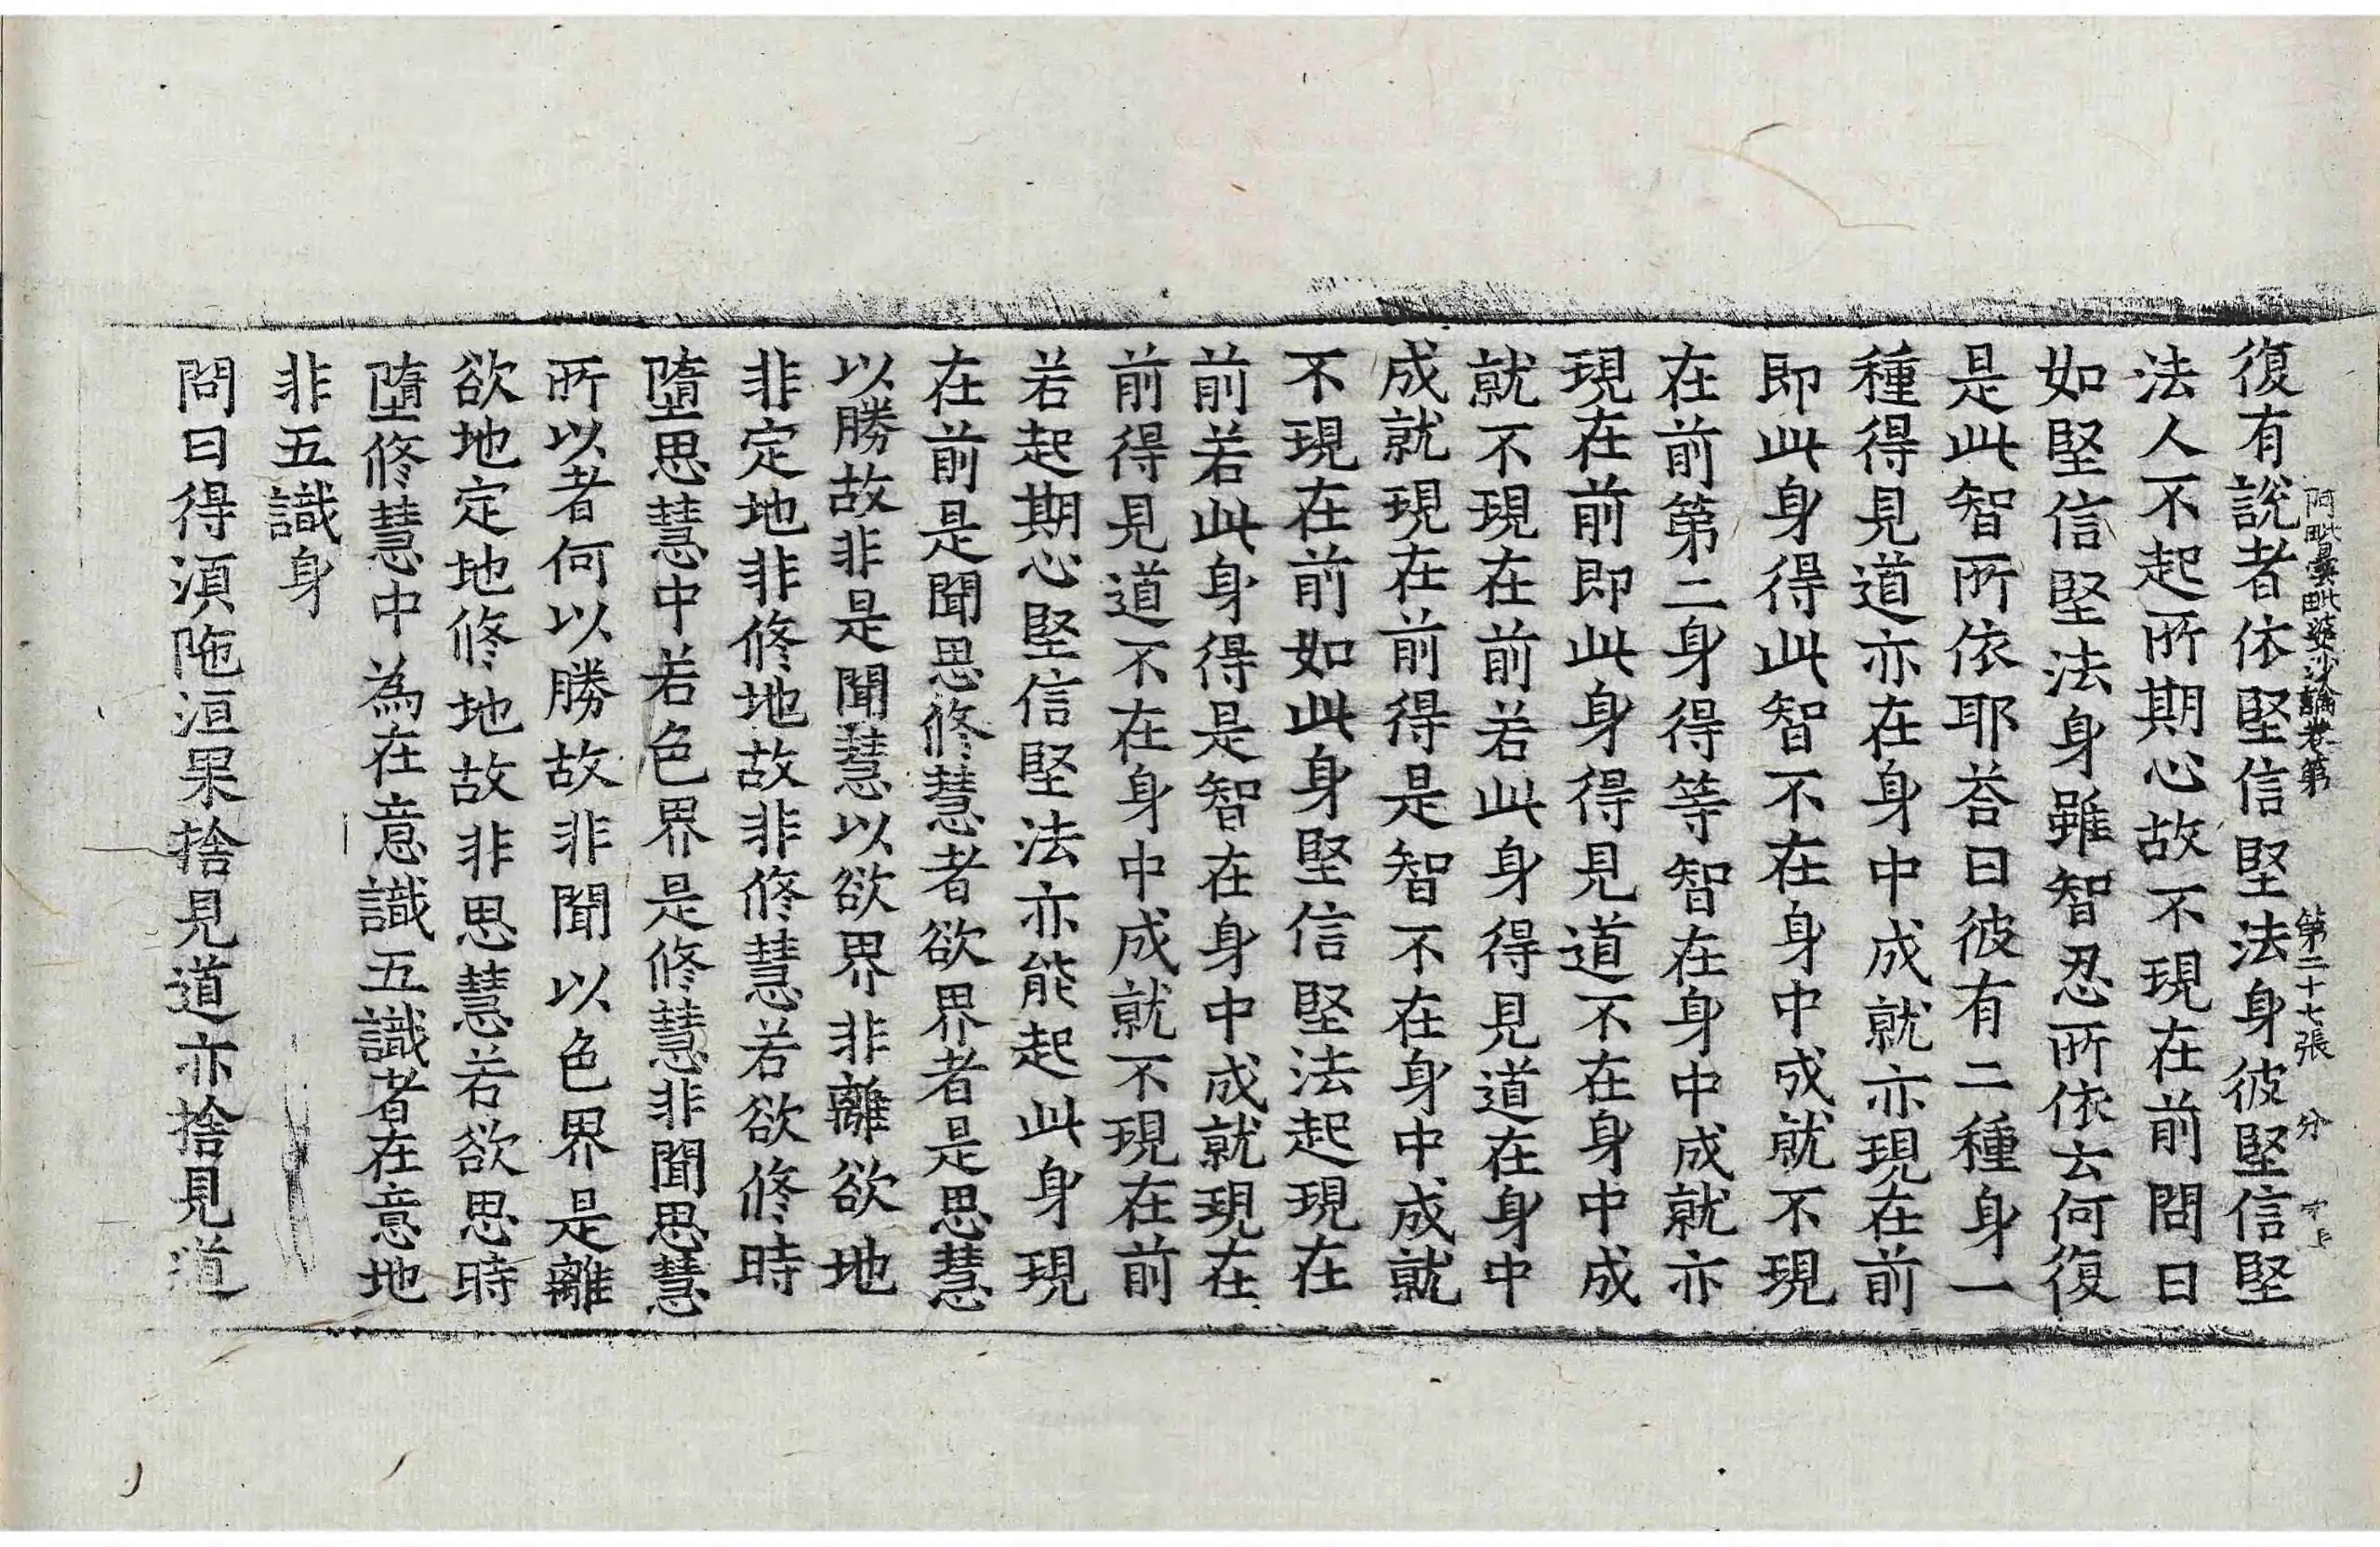 復有說者依堅信堅法身彼堅信堅
阿毗曇毗婆沙論卷第 第二十七張 分
法人不起所期心故不現在前問曰
如堅信堅法身雖智忍所依云何復
是此智所依耶荅曰彼有二種身一
種得見道亦在身中成就亦現在前
即此身得此智不在身中成就不現
在前第二身得等智在身中成就亦
現在前即此身得見道不在身中成
就不現在前若此身得見道在身中
成就現在前得是智不在身中成就
不現在前如此身堅信堅法起現在
前若此身得是智在身中成就現在
前得見道不在身中成就不現在前
若起期心堅信堅法亦能起此身現
在前是聞思修慧者欲界者是思慧
以勝故非是聞慧以欲界非離欲地
非定地非修地故非修慧若欲修時
墮思慧中若色界是修慧非聞思慧
所以者何以勝故非聞以色界是離
欲地定地修地故非思慧若欲思時
墮修慧中為在意識五識者在意地
非五識身
問曰得須陁洹果捨見道亦捨見道